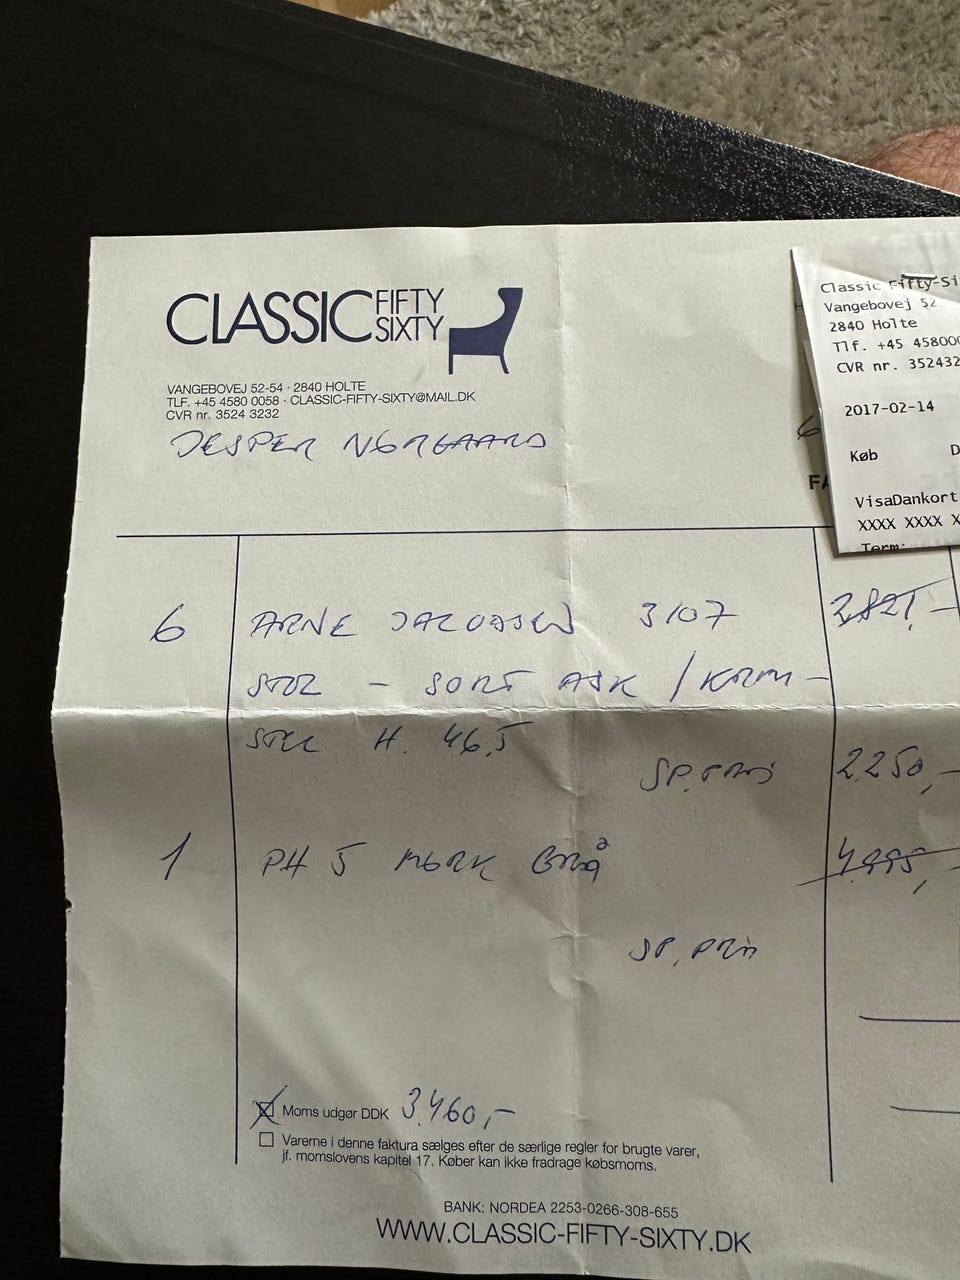 CLASSIC FIFTY SIXTY
VANGEBOVEJ 52-54 · 2840 HOLTE
TLF. +45 4580 0058 · CLASSIC-FIFTY-SIXTY@MAIL.DK
CVR nr. 3524 3232
JESPER NØRGAARD
Classic Fifty-Si
Vangebovej 52
2840 Holte
Tlf. +45 458000
CVR nr. 352432
2017-02-14
Køb D
VisaDankort
XXXX XXXX X
Term:
FA
6 ARNE JACOBSEN 3107
STOL - SORT ASK / KROM -
STEL H. 46,5
SP.PRIS 2.250,-
1 PH 5 MØRK GRÅ 4.995,-
SP.PRIS
Moms udgør DDK 3.460,-
Varerne i denne faktura sælges efter de særlige regler for brugte varer,
jf. momslovens kapitel 17. Køber kan ikke fradrage købsmoms.
BANK: NORDEA 2253-0266-308-655
WWW.CLASSIC-FIFTY-SIXTY.DK